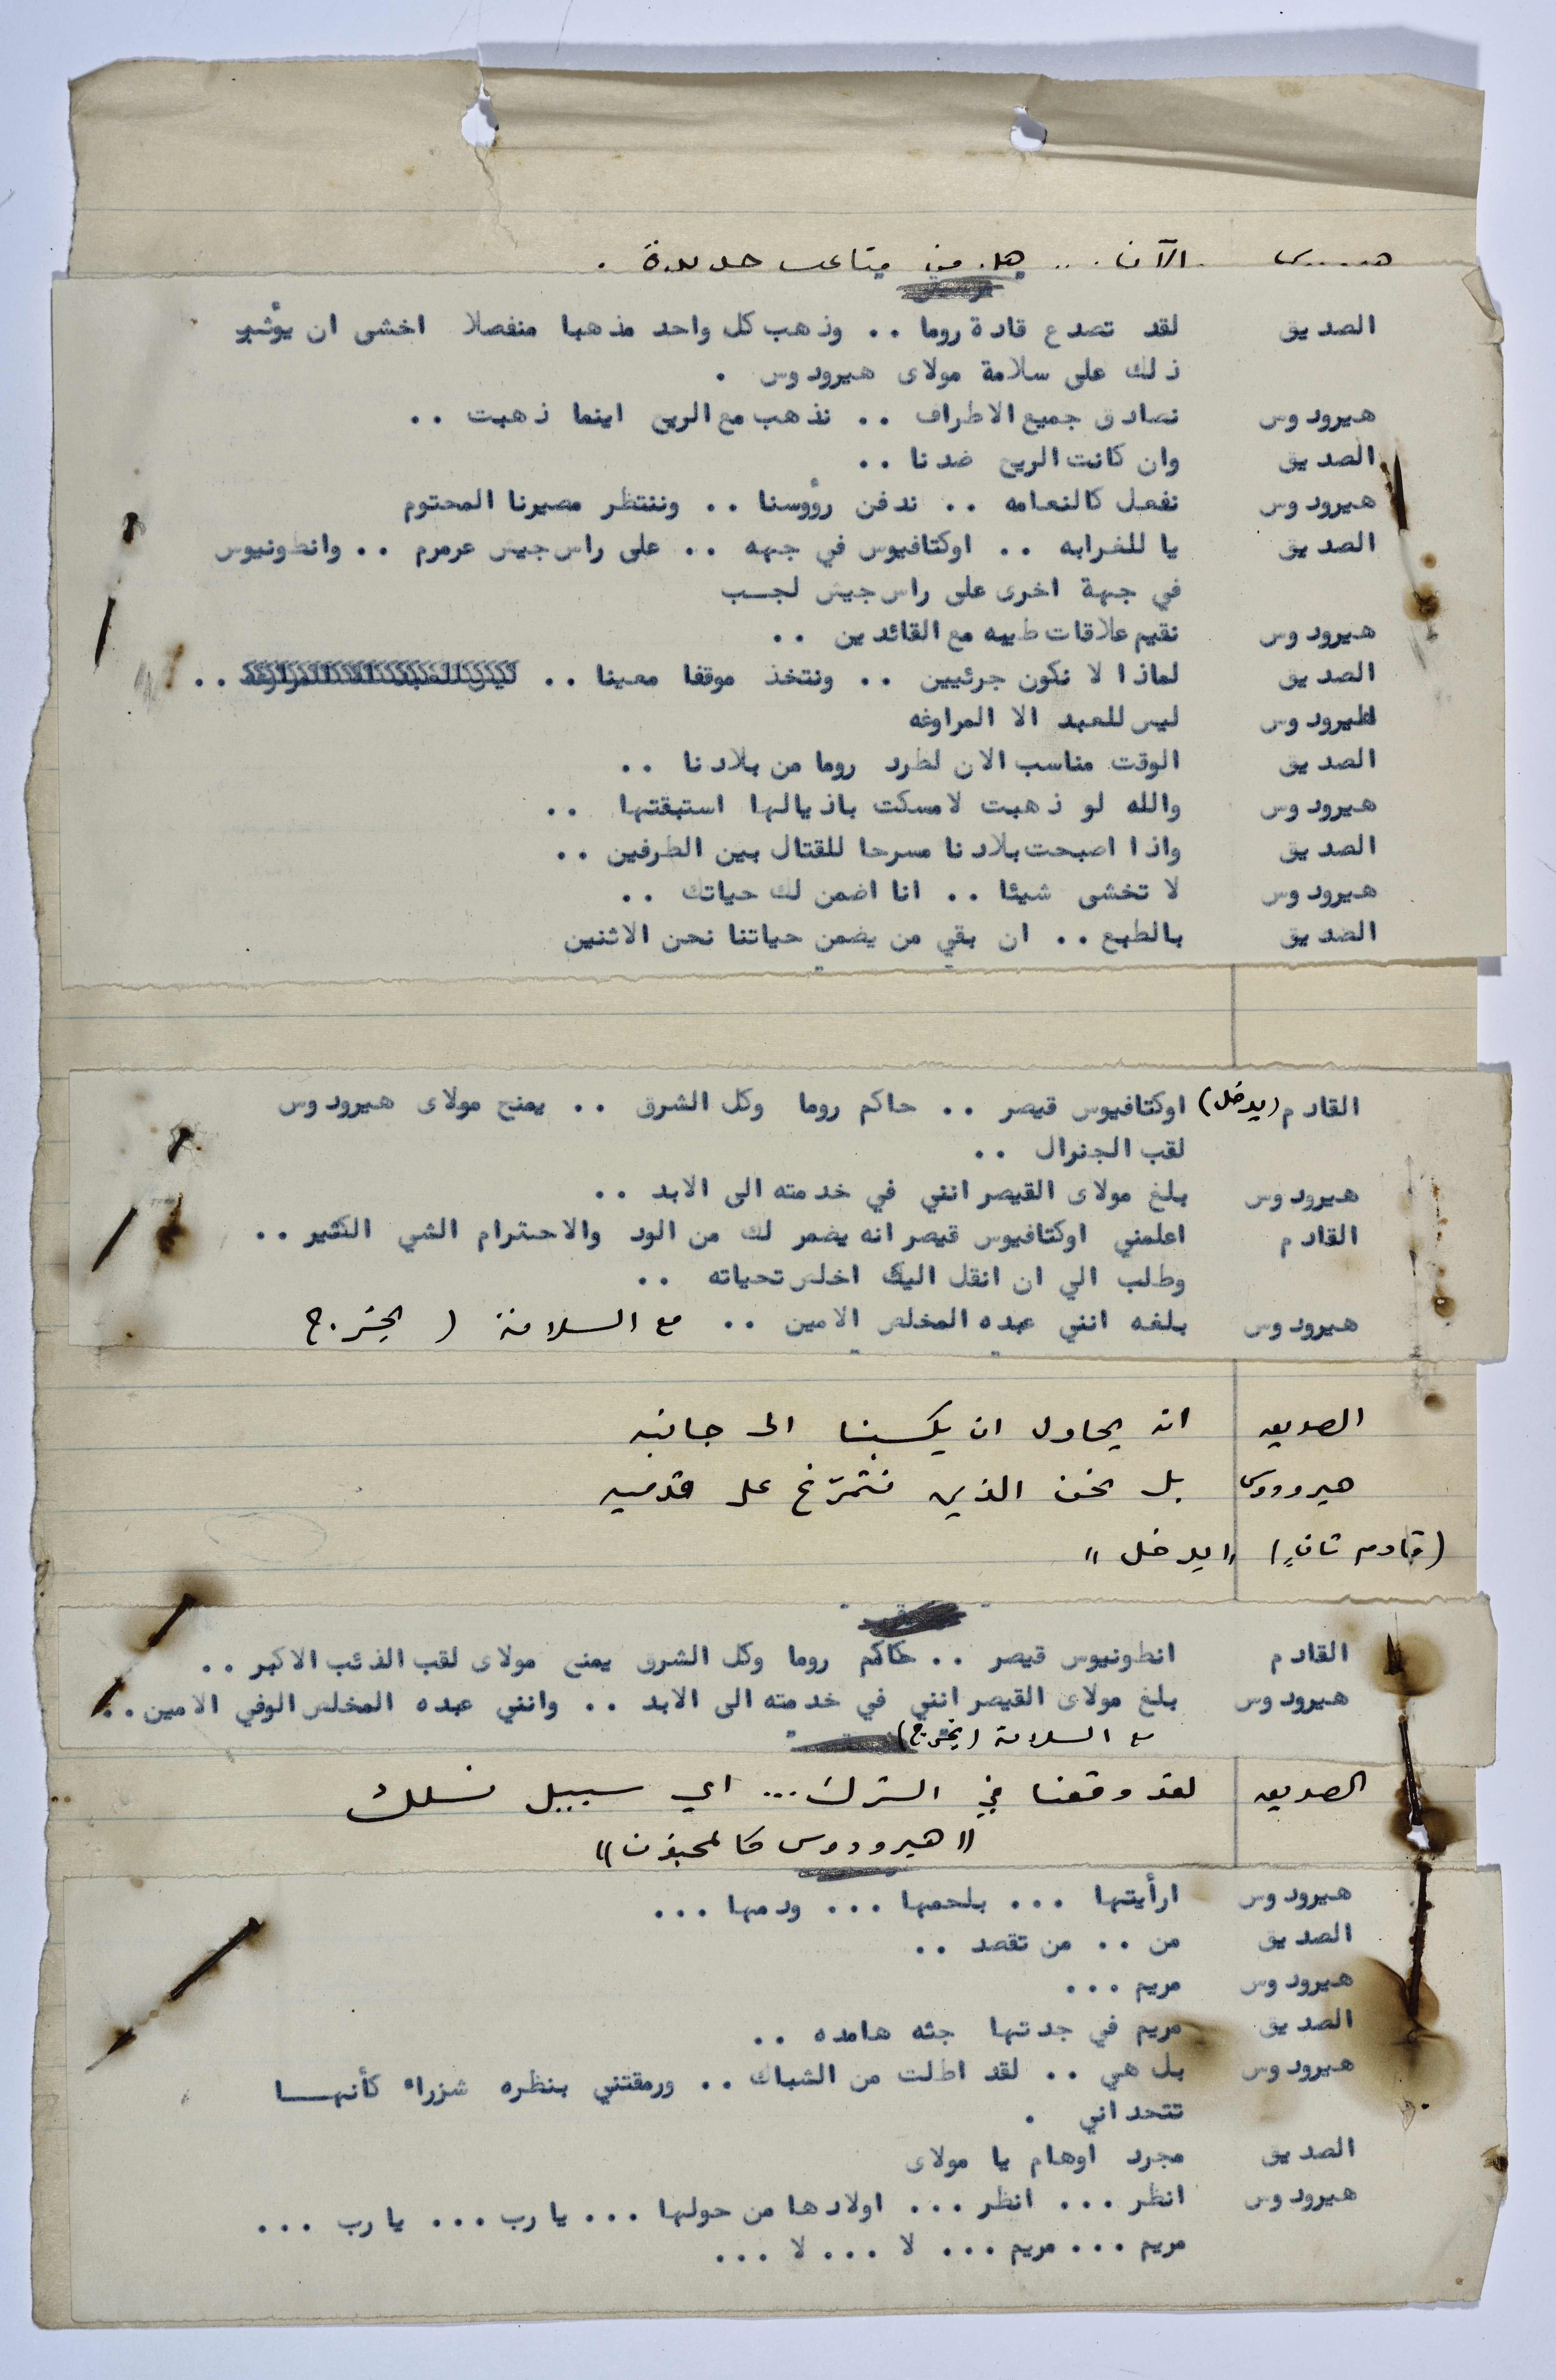 الآن .. هل من متاعب جديدة .
الصديق لقد تصدع قادة روما .. وذهب كل واحد مذهبا منفصلا اخشى ان يؤثر
ذلك على سلامة مولاى هيرودوس .
هيرودوس نصادق جميع الاطراف .. نذهب مع الريح اينما ذهبت ..
الصديق وان كانت الريح ضدنا ..
هيرودوس نفعل كالنعامه .. ندفن رؤوسنا .. وننتظر مصيرنا المحتوم
الصديق يا للغرابه .. اوكتافيوس في جهه .. على راس جيش عرمرم .. وانطونيوس
في جهة اخرى على راس جيش لجب
هيرودوس نقيم علاقات طيبه مع القائدين ..
الصديق لماذا لا نكون جرئيين .. ونتخذ موقفا معينا .. ليس للعبد الا المراوغه ..
هيرودوس ليس للعبد الا المراوغه
الصديق الوقت مناسب الان لطرد روما من بلادنا ..
هيرودوس والله لو ذهبت لامسكت باذيالها استبقتها ..
الصديق واذا اصبحت بلادنا مسرحا للقتال بين الطرفين ..
هيرودوس لا تخشى شيئا .. انا اضمن لك حياتك ..
الصديق بالطبع .. ان بقي من يضمن حياتنا نحن الاثنين
القادم (يدخل) اوكتافيوس قيصر .. حاكم روما وكل الشرق .. يمنح مولاى هيرودوس
لقب الجنرال ..
هيرودوس بلغ مولاى القيصر انني في خدمته الى الابد ..
القادم اعلمني اوكتافيوس قيصر انه يضمر لك من الود والاحترام الشي الكثير ..
وطلب الي ان انقل اليك اخلص تحياته ..
هيرودوس بلغه انني عبده المخلص الامين .. مع السلامة ( يخرج
الصديق انه يحاول ان يكسبنا الى جانبه
هيرودوس بل نحن الذين نتمرّغ على قدميه
(قادم ثانٍ) "يدخل"
القادم انطونيوس قيصر .. حاكم روما وكل الشرق يمنح مولاى لقب الذئب الاكبر ..
هيرودوس بلغ مولاى القيصر انني في خدمته الى الابد .. وانني عبده المخلص الوفي الامين ..
مع السلامة (يخرج)
الصديق لقد وقعنا في الشرك ... اي سبيل نسلك
"هيرودوس كالمجنون"
هيرودوس ارأيتها ... بلحمها ... ودمها ...
الصديق من .. من تقصد ..
هيرودوس مريم ...
الصديق مريم في جدتها جثه هامده ..
هيرودوس بل هي .. لقد اطلت من الشباك .. ورمقتني بنظره شزراء كأنهـــا
تتحداني .
الصديق مجرد اوهام يا مولاى
هيرودوس انظر ... انظر ... اولادها من حولها ... يا رب ... يا رب ...
مريم ... مريم ... لا ... لا ...